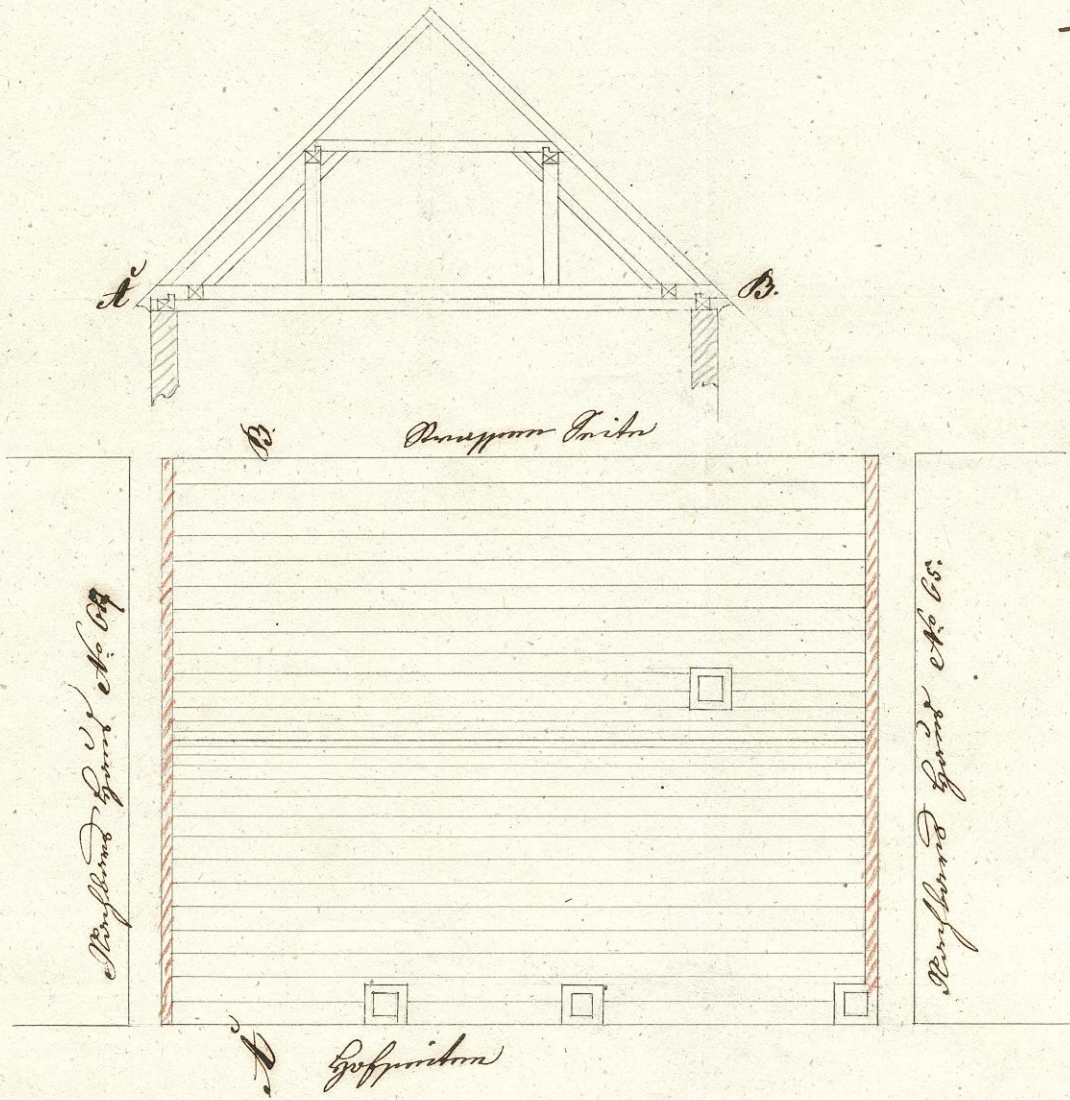 A
B.
B.
Strassen Seite
Nachbars Haus No 64
Nachbars Haus No 65.
A
Hofseiten